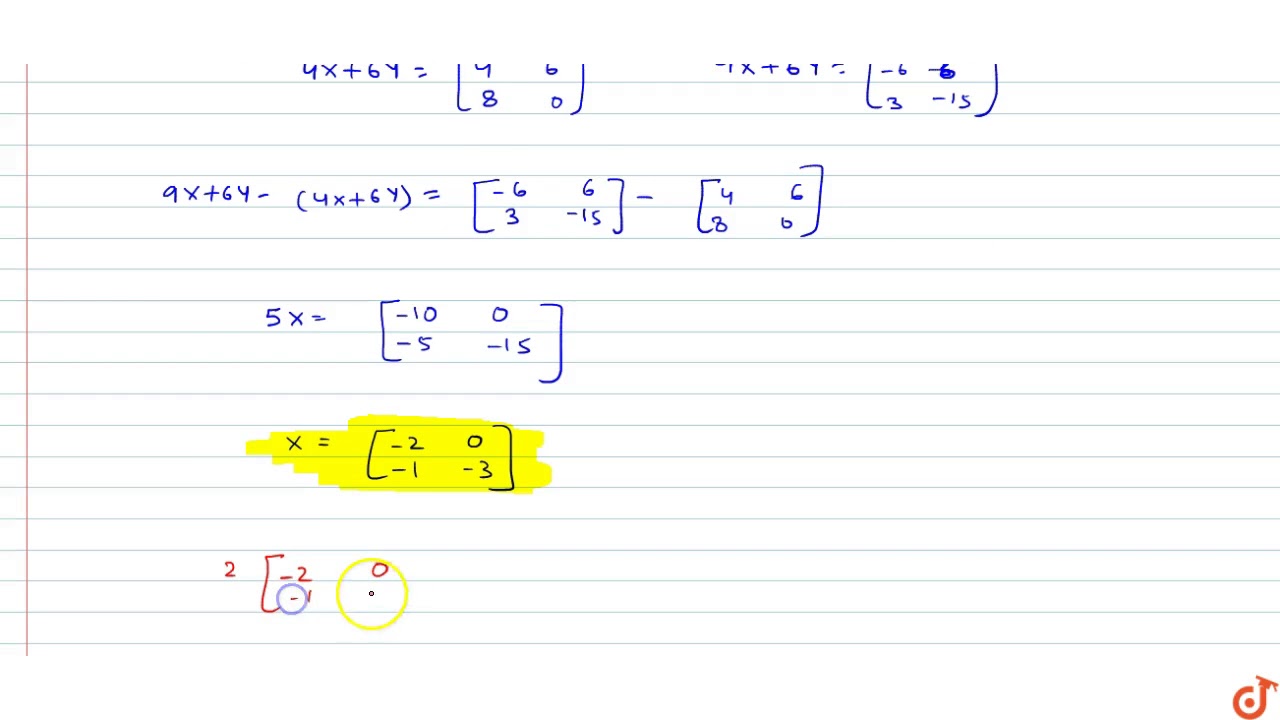 4x+6y = [4 6
8 0]
x+6y = [-6 6
3 -15]
9x+6y - (4x+6y) = [-6 6
3 -15] - [4 6
8 0]
5x = [-10 0
-5 -15]
x = [-2 0
-1 -3]
2 [-2 0
-1